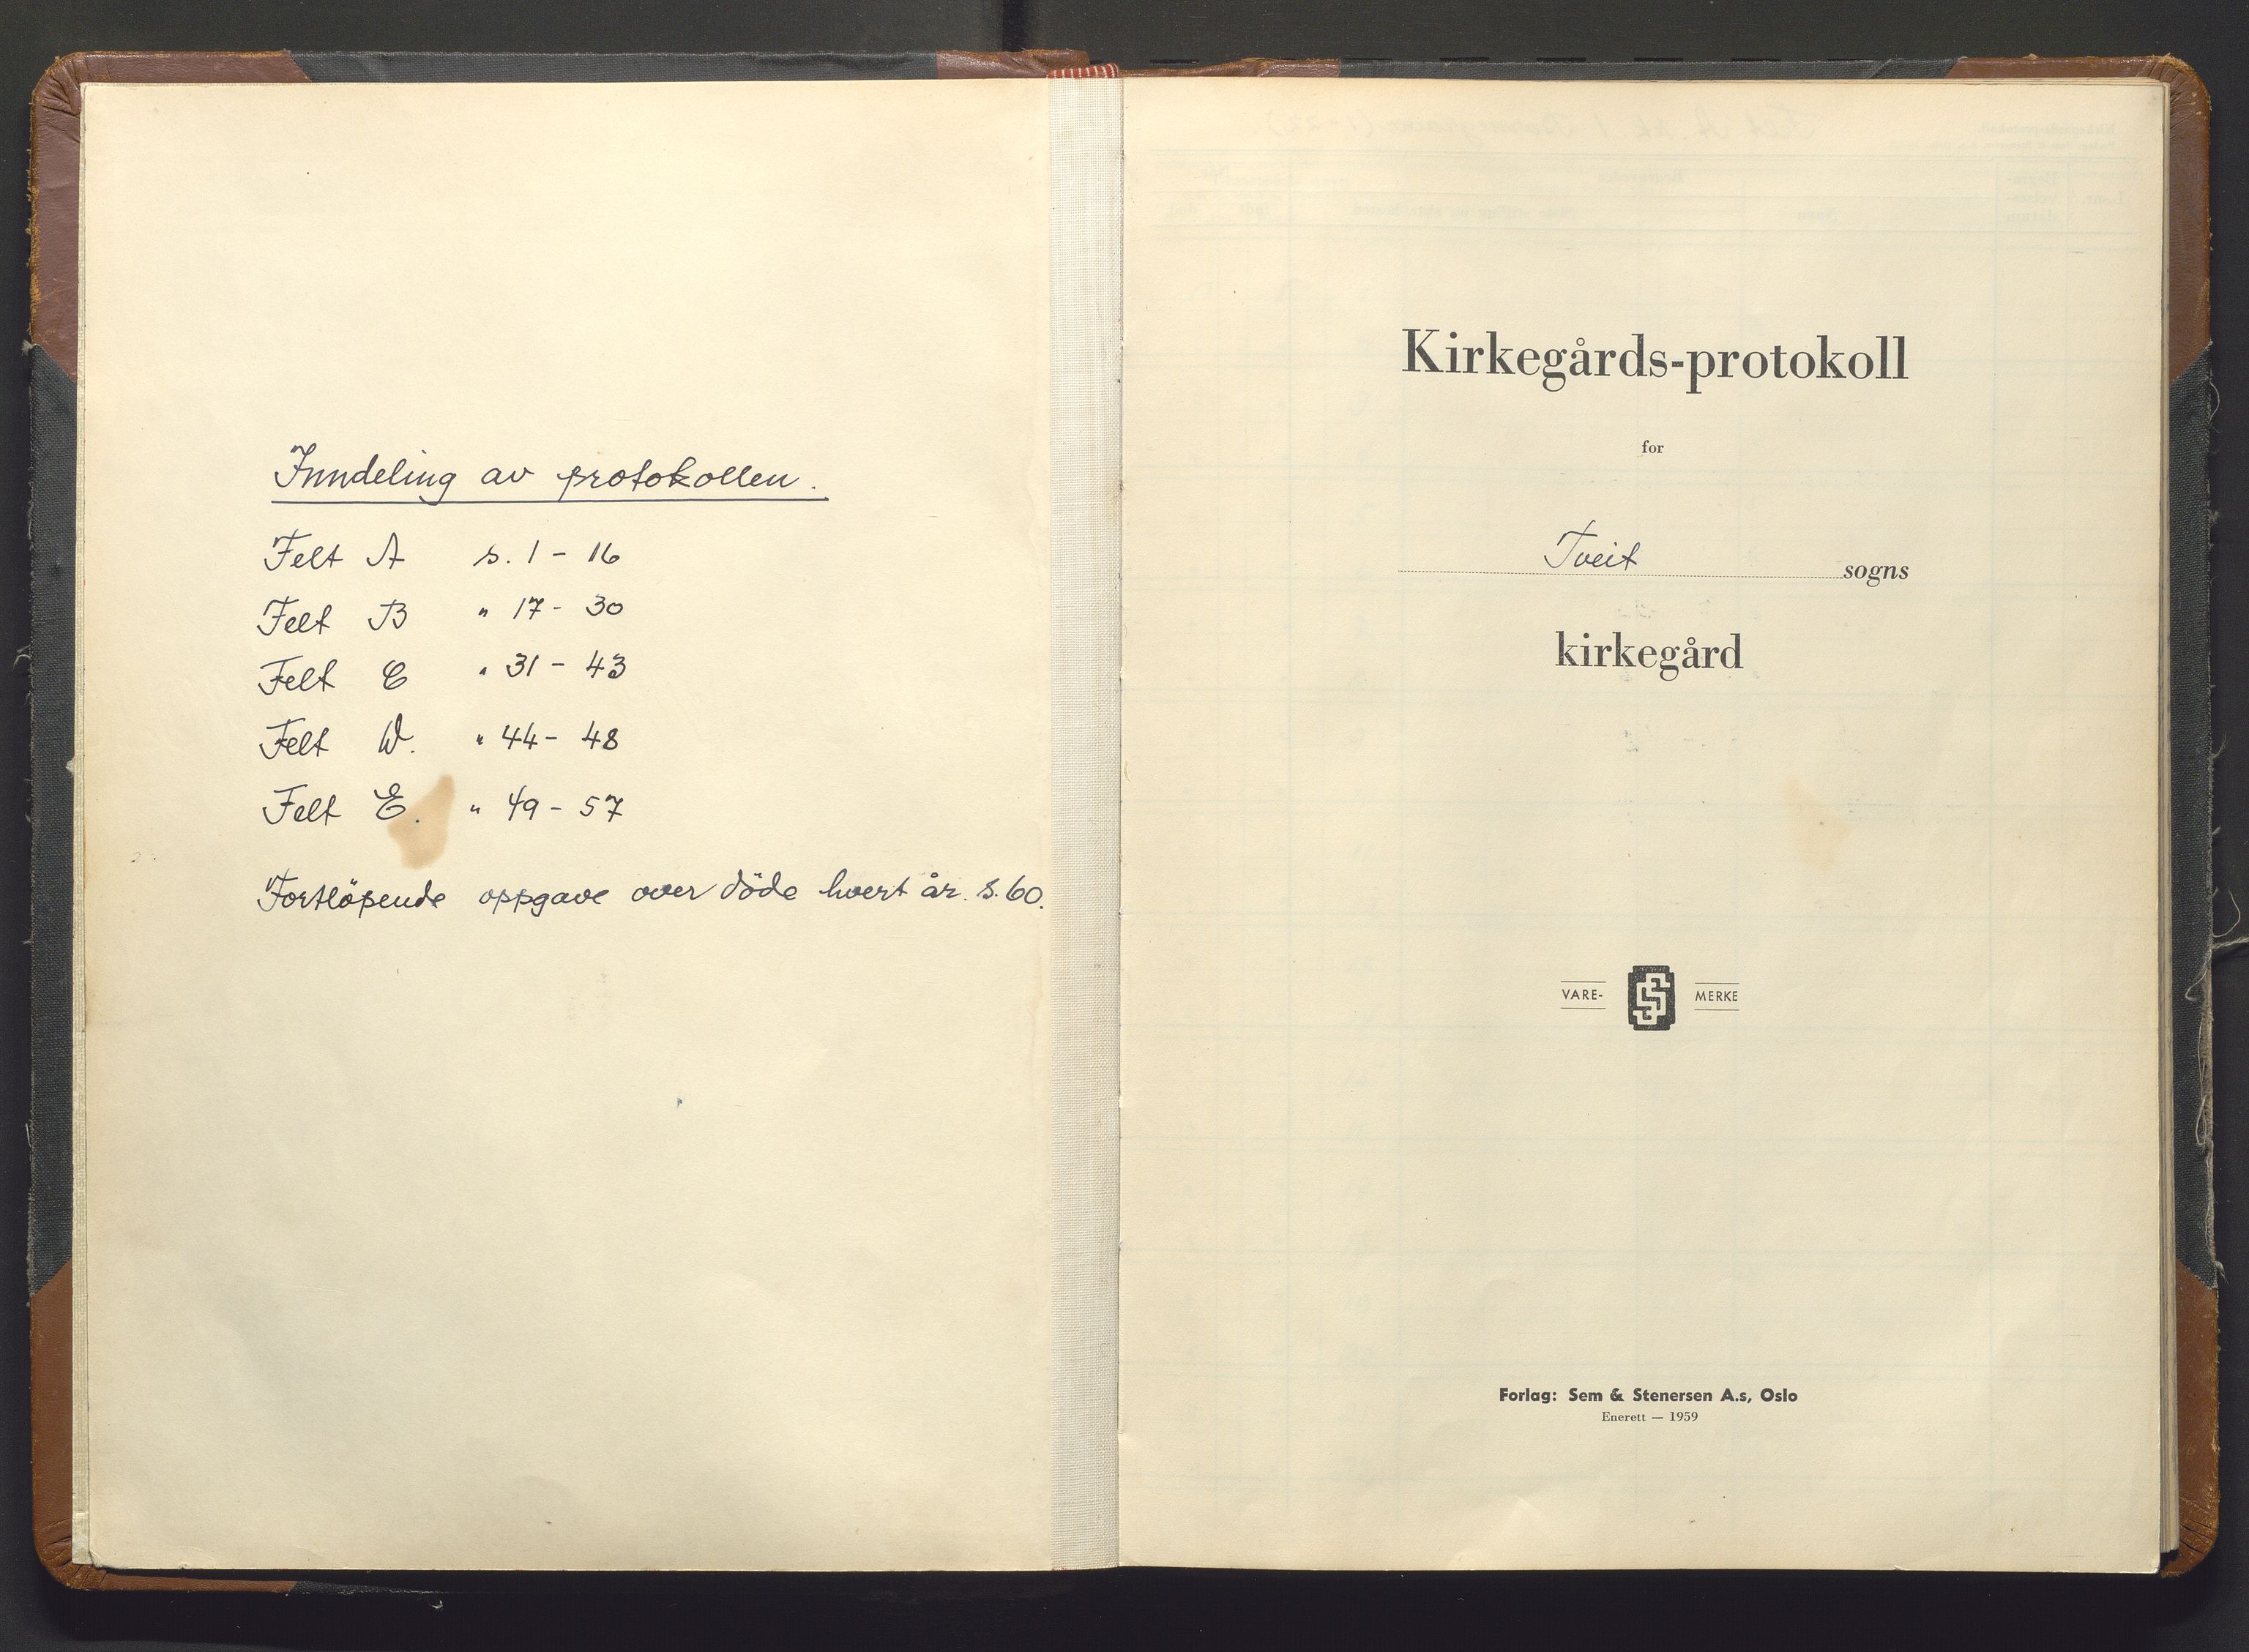 Inndeling av protokollen.
Felt A s. 1 - 16
Felt B " 17 - 30
Felt C " 31 - 43
Felt D. " 44 - 48
Felt E. " 49 - 57
Fortlöpende oppgave over döde hvert år. s. 60.
Kirkegårds-protokoll
for
Tveit sogns
kirkegård
VARE- MERKE
Forlag: Sem & Stenersen A.s, Oslo
Enerett — 1959